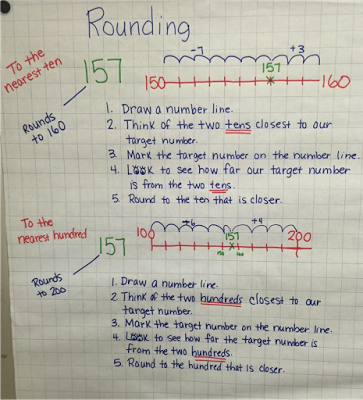 Rounding
To the
nearest ten
157
-7
+3
157
150
160
Rounds
to 160
1. Draw a number line.
2. Think of the two tens closest to our
target number.
3. Mark the target number on the number line.
4. Look to see how far our target number
is from the two tens.
5. Round to the ten that is closer.
To the
nearest hundred
157
100
+6
+4
157
200
150
160
Rounds
to 200
1. Draw a number line.
2 Think of the two hundreds closest to our
target number.
3. Mark the target number on the number line.
4. Look to see how far the target number is
from the two hundreds.
5. Round to the hundred that is closer.